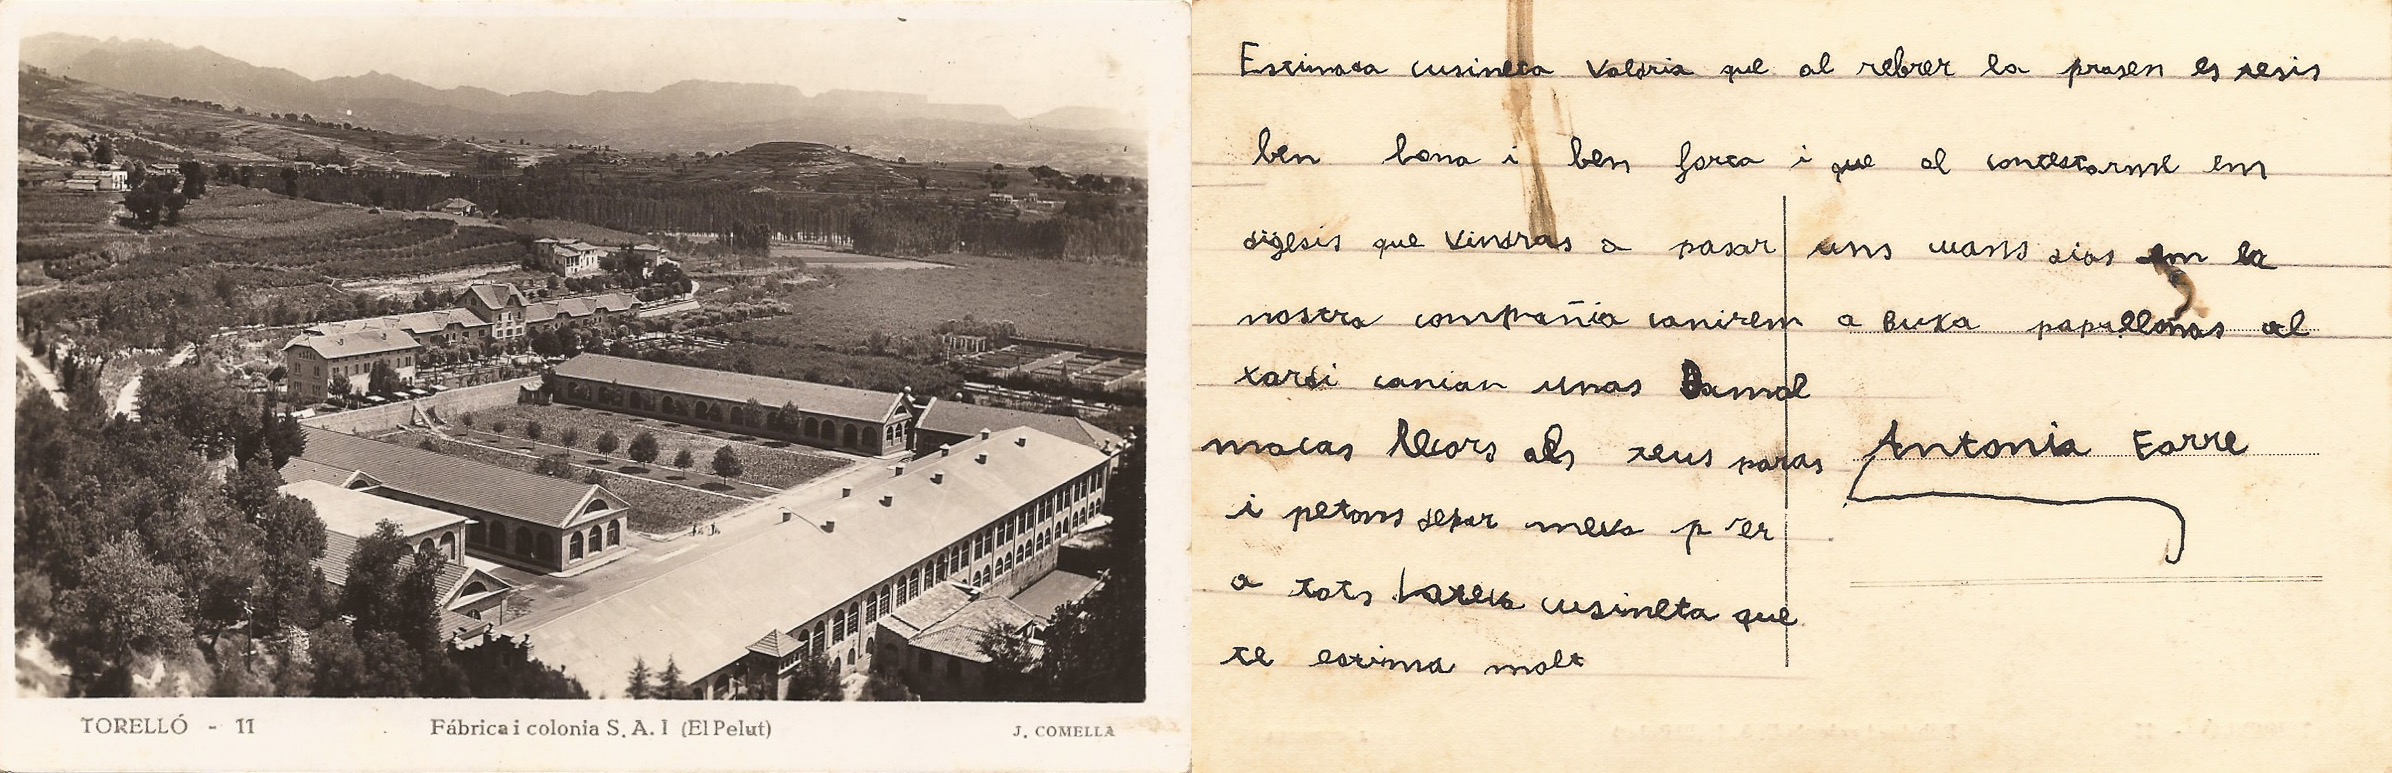 TORELLÓ - 11
Fábrica i colonia S. A. I (El Pelut)
J. COMELLA
Estimada cusineta Valdria que al rebrer la prasen es tesis
ben bona i ben forta i que al contestarme em
digesis que vindras a pasar uns cuans dias em la
nostra compañia canirem a buxa papellonas al
xardi canian unas
macas als teus paras Antonia Farre
i petons depar meva per
a tots cusineta que
te estima molt